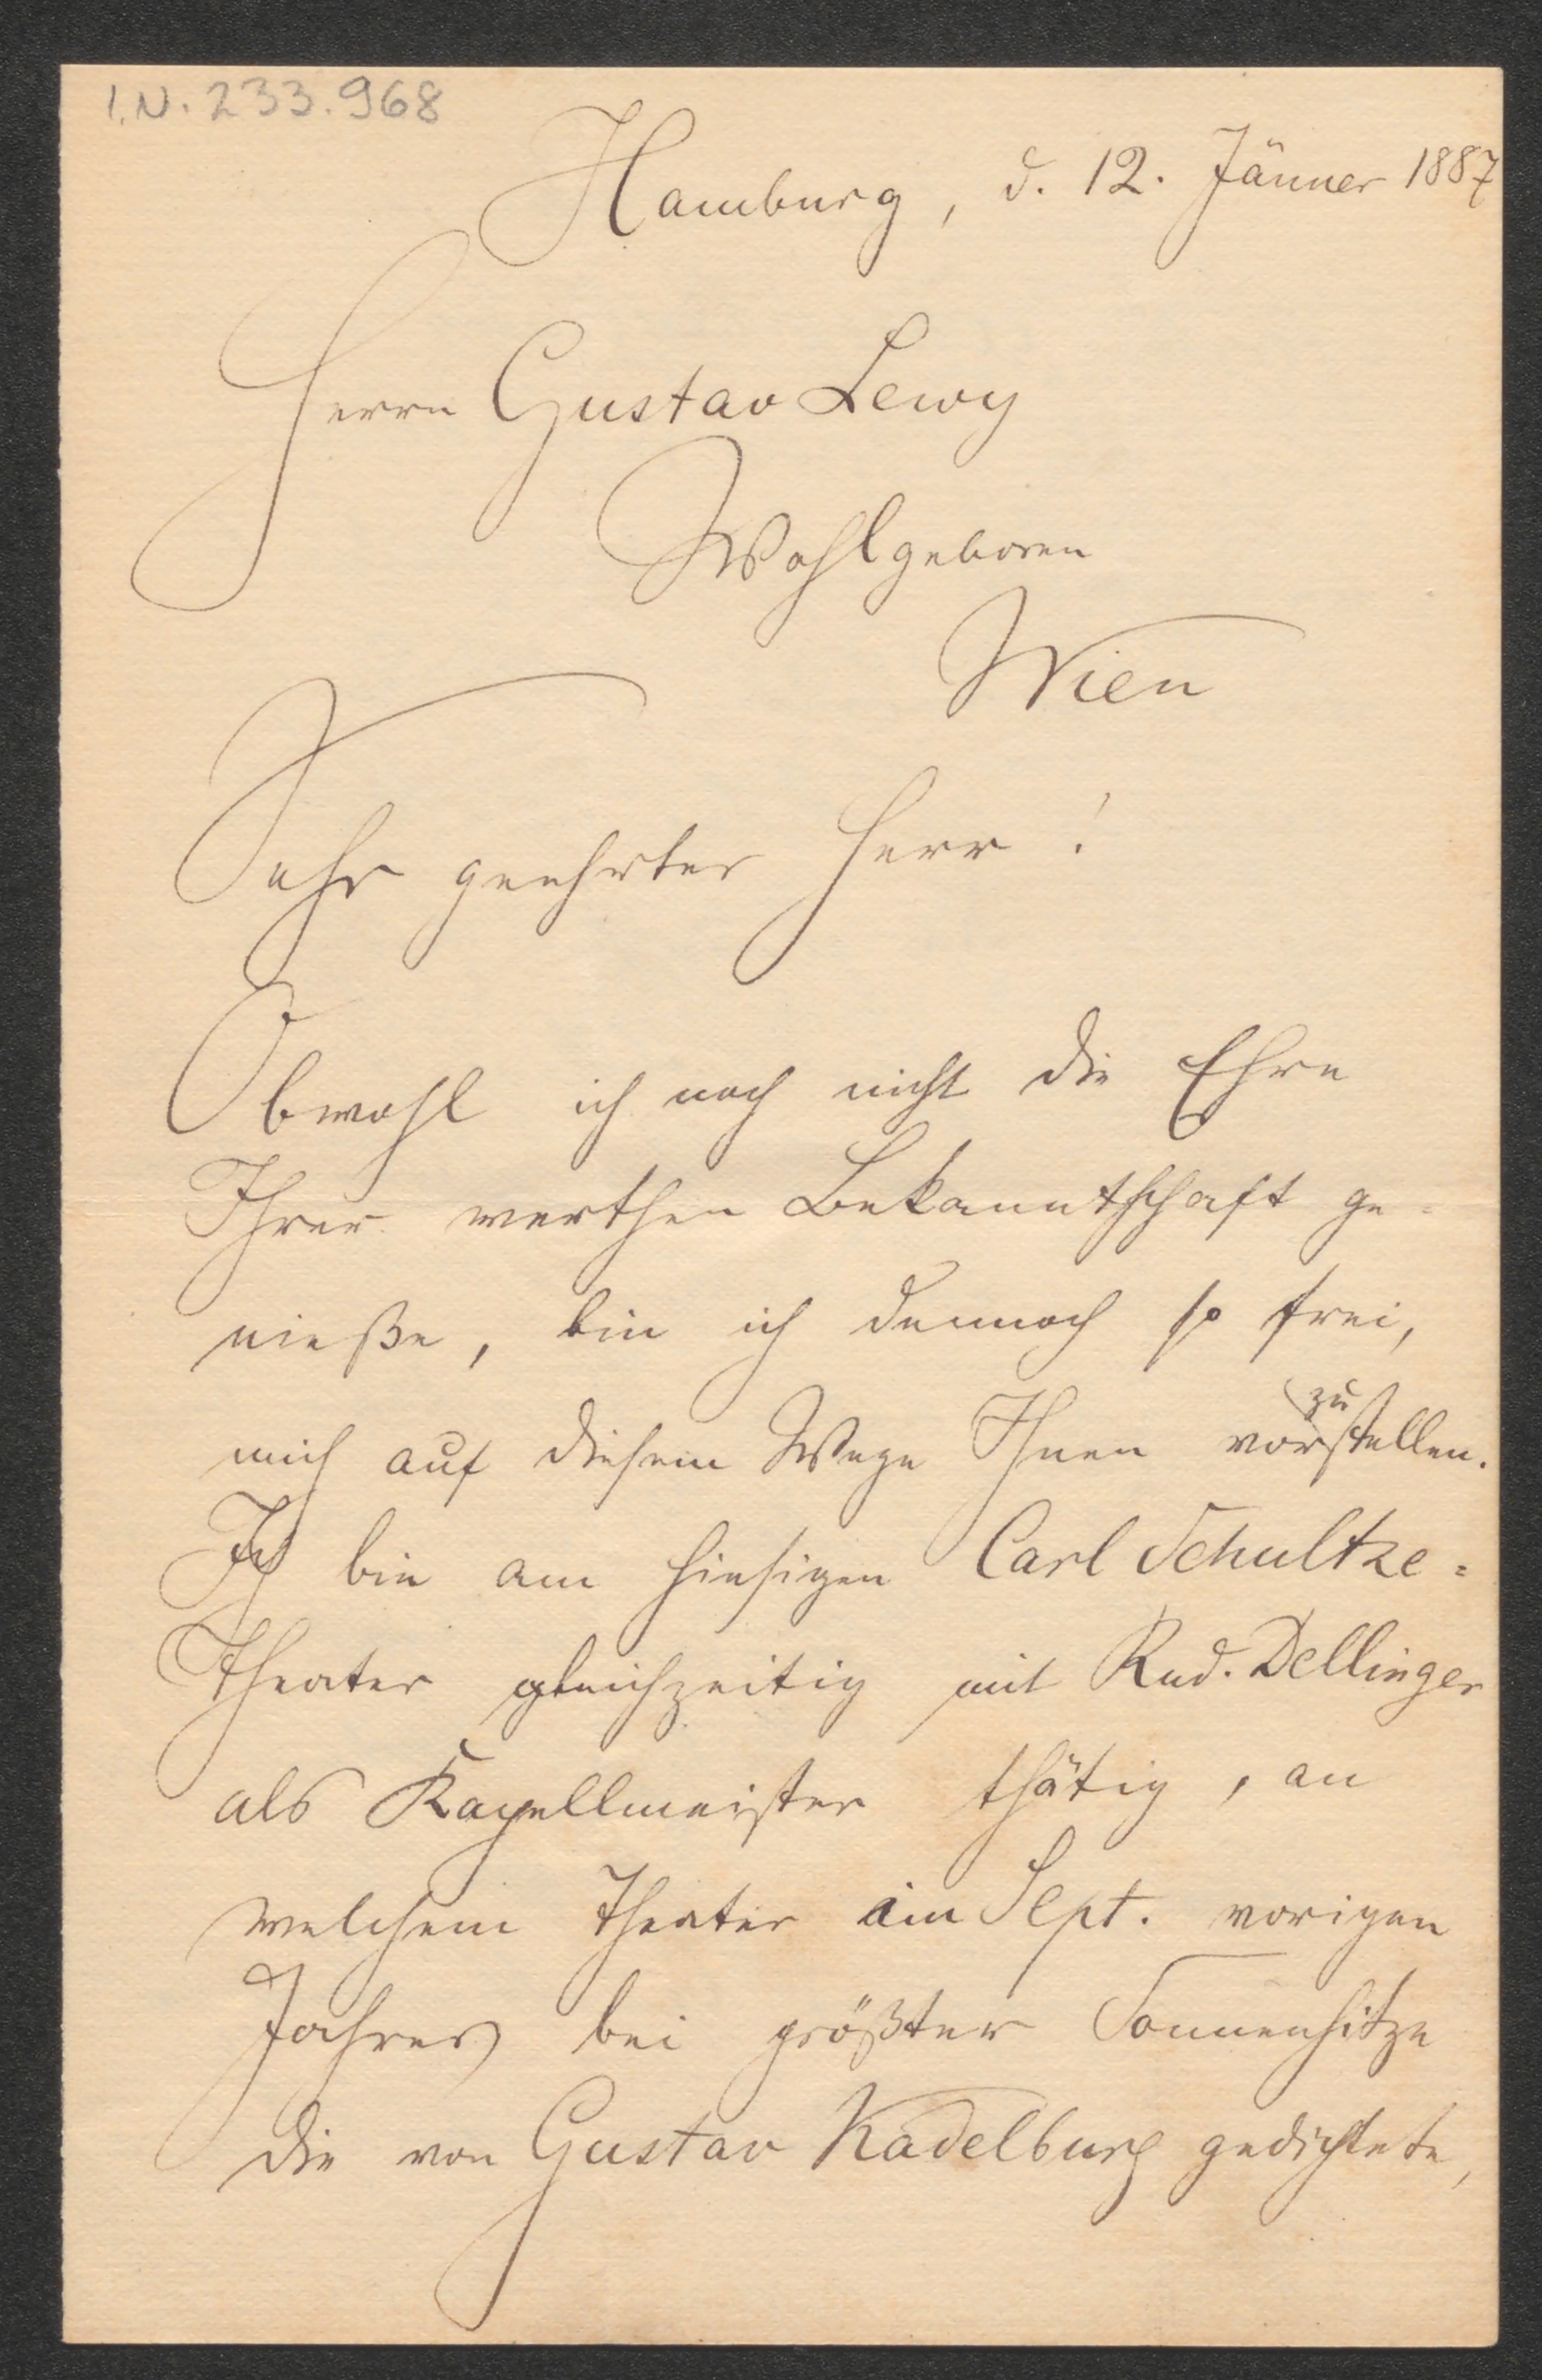 I.N. 233.968
Hamburg, d. 12. Jänner 1887
Herrn Gustav Lewy
Wohlgeboren
Wien
Sehr geehrter Herr!
Obwohl ich noch nicht die Ehre
Ihrer werthen Bekanntschaft ge-
nieße, bin ich dennoch so frei,
mich auf diesem Wege Ihnen vorzustellen.
Ich bin am hiesigen Carl Schultze-
Theater gleichzeitig mit Rud. Dellinger
als Kapellmeister thätig, an
welchem Theater im Sept. vorigen
Jahres bei größter Sonnenhitze
die von Gustav Kadelburg gedichtete,